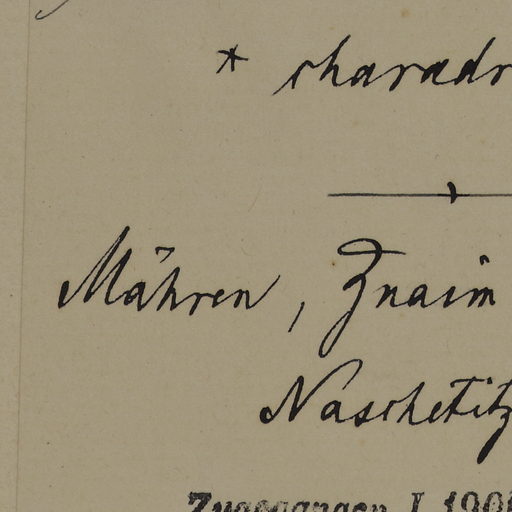 * charadr
Mähren, Znaim
Naschetitz
Zugegangen I 190